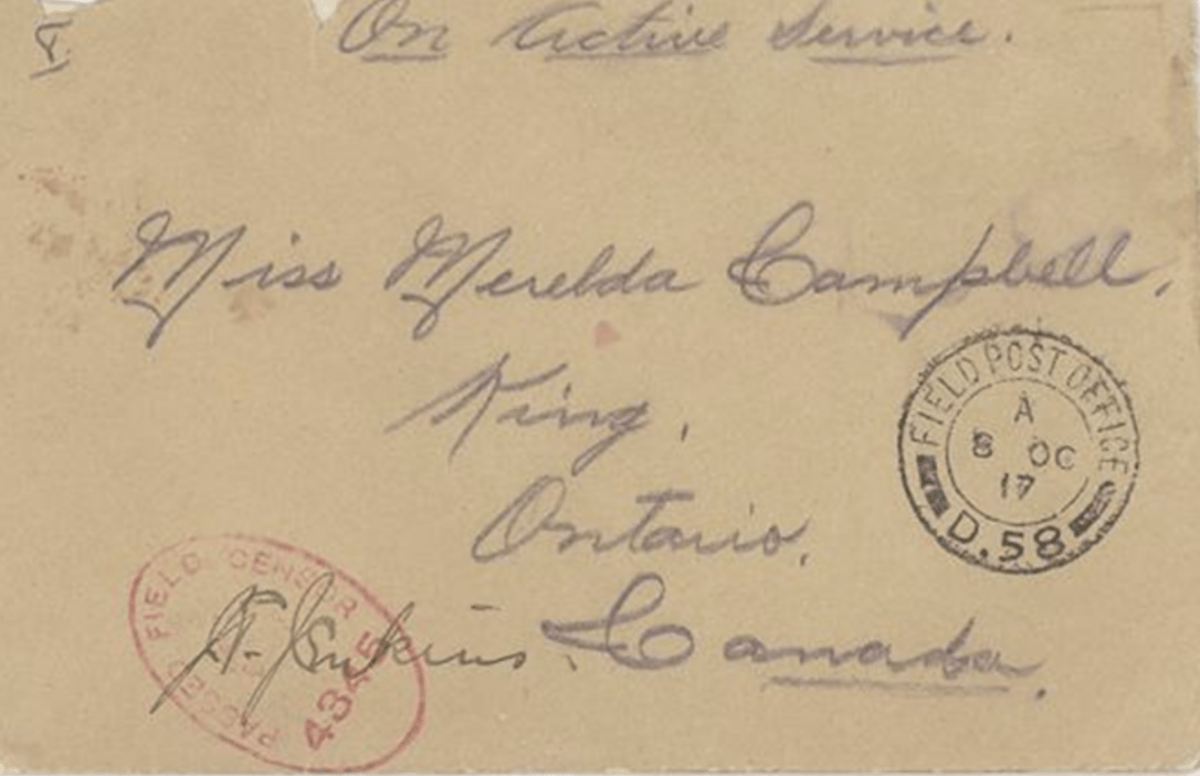 On Active Service.
Miss Merelda Campbell,
King,
Ontario,
Canada.
FIELD POST OFFICE
A
8 OC
17
D.58
PASSED FIELD CENSOR
Jenkins.